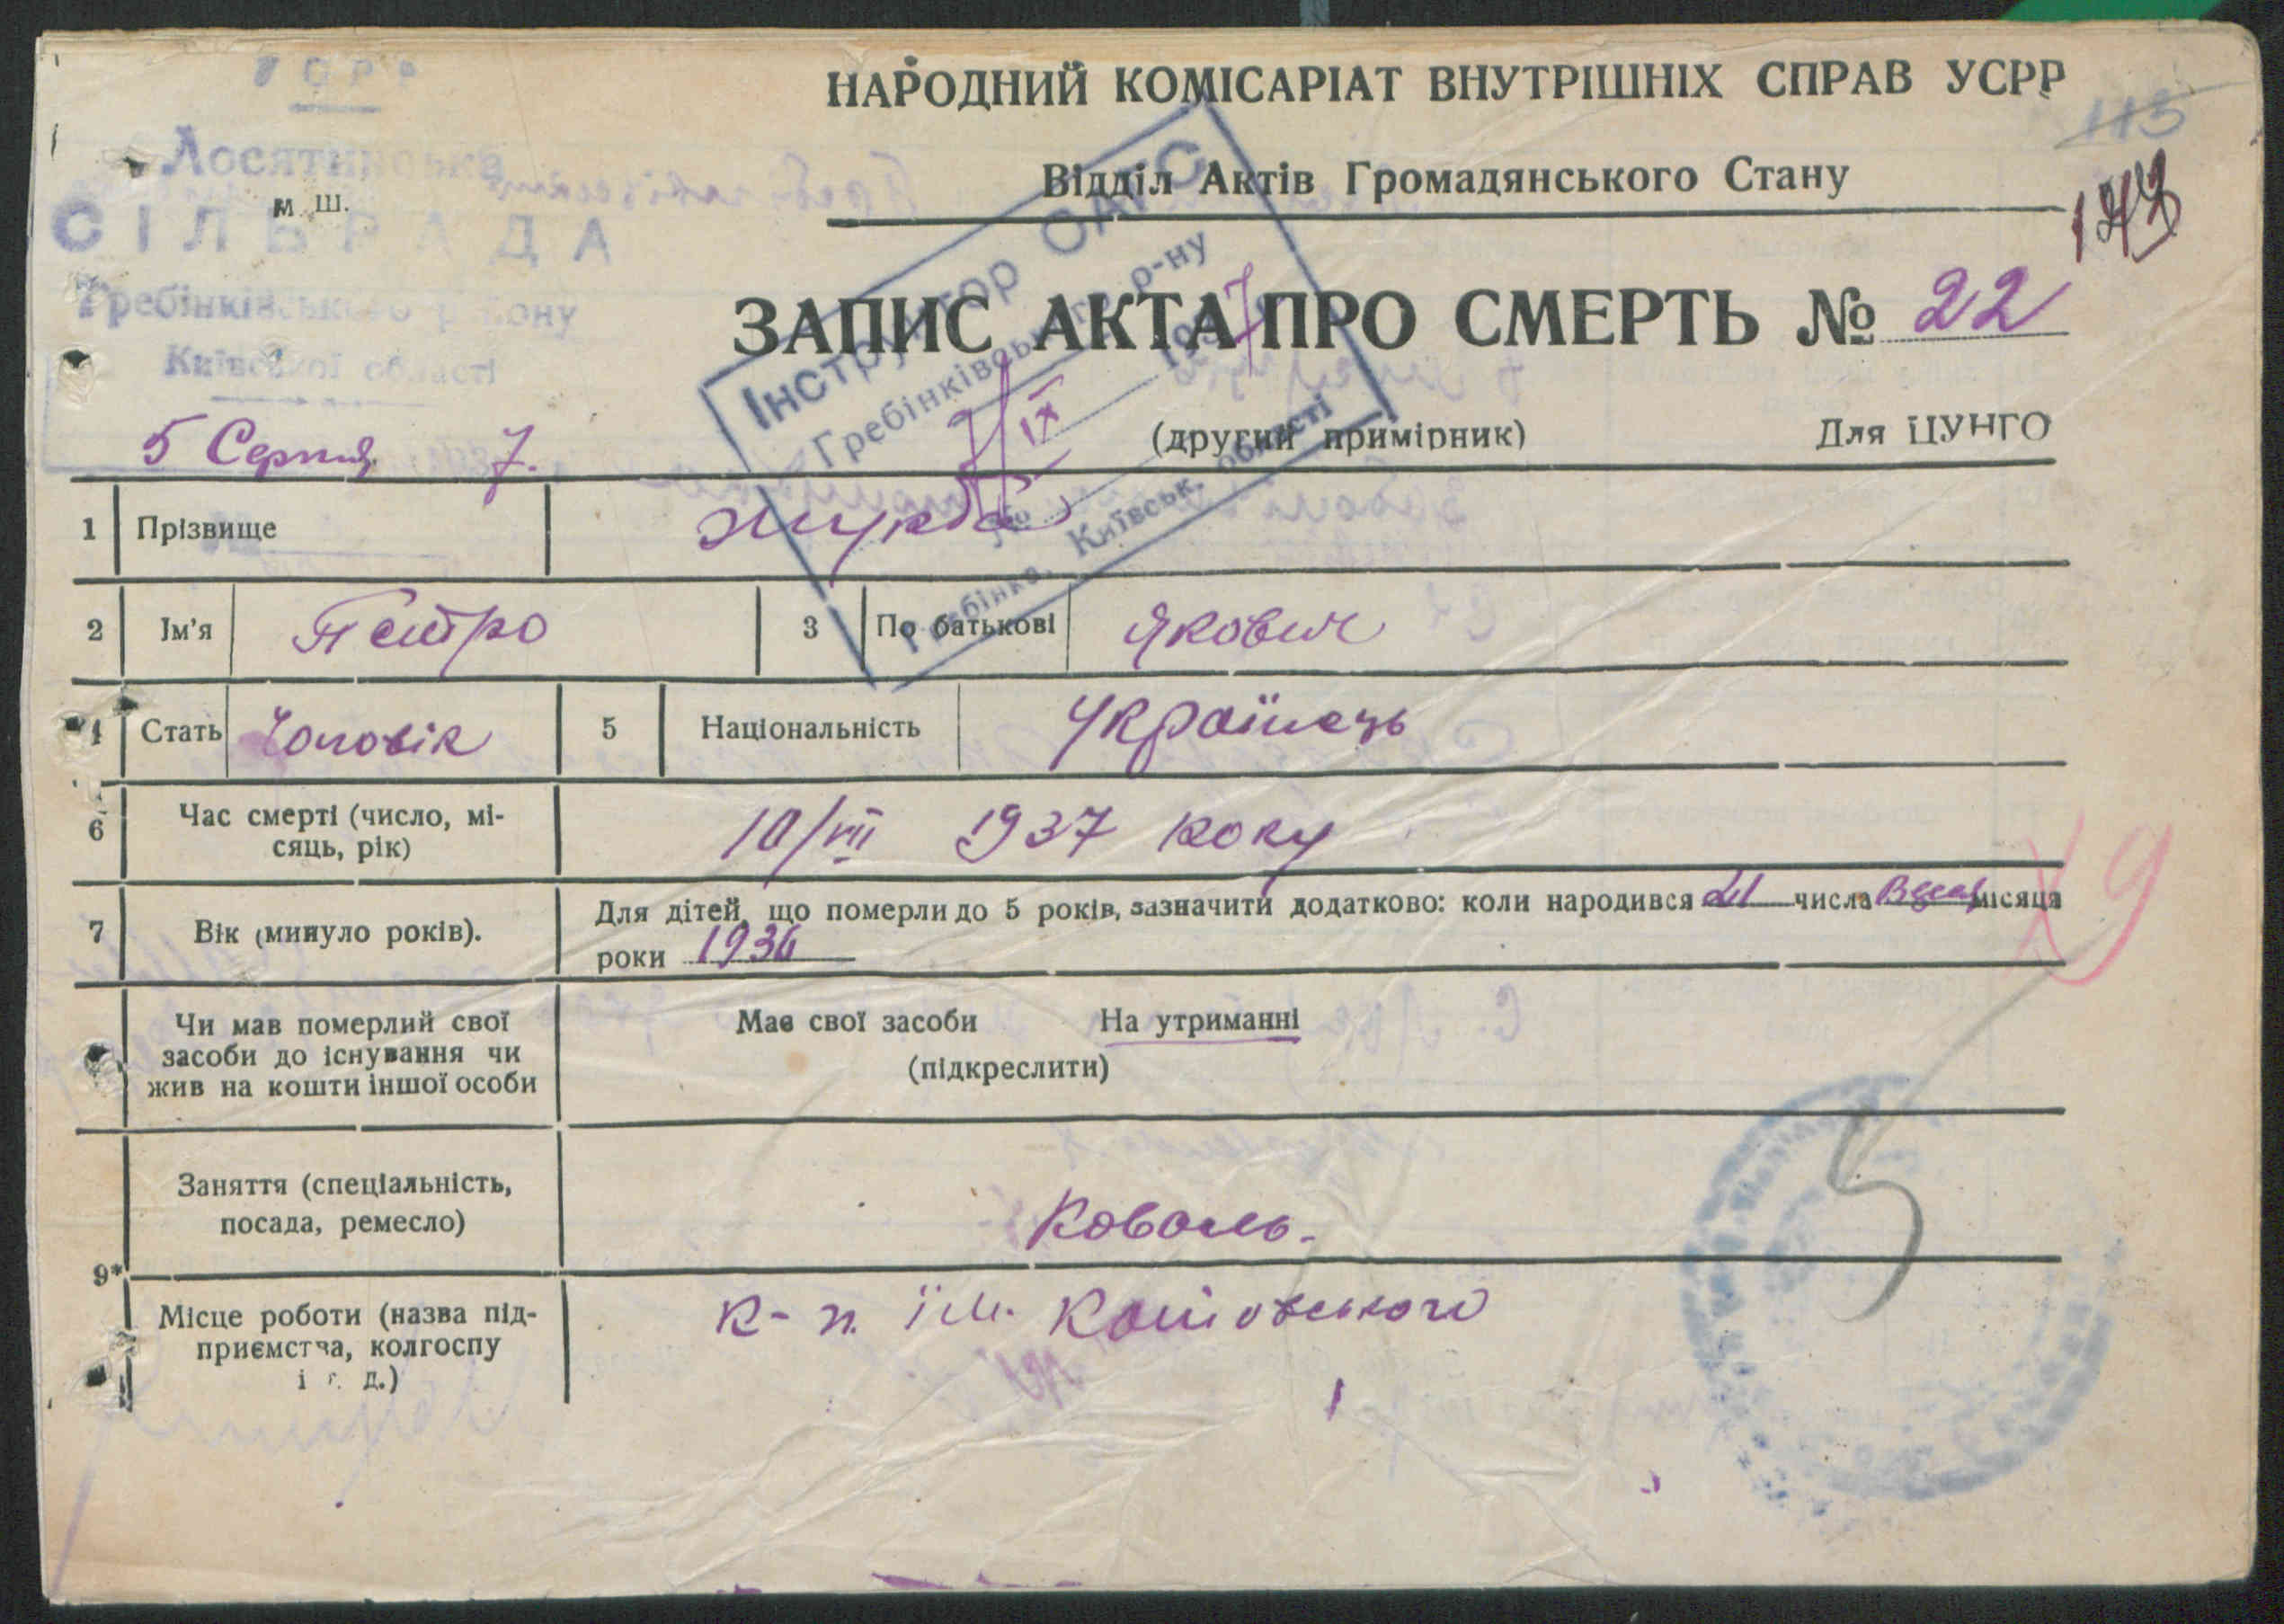 УСРР
Лосятинська
СІЛЬРАДА
Гребінківського району
Київської області
м. ш.
НАРОДНИЙ КОМІСАРІАТ ВНУТРІШНІХ СПРАВ УСРР
113
Відділ Актів Громадянського Стану
ЗАПИС АКТА ПРО СМЕРТЬ № 22
Інструктор ОАГС
Гребінківського р-ну
7/IX 1937
№
Гребінка, Київськ. області
5 Серпня 7.
(другий примірник)
Для ЦУНГО
1 Прізвище
2 Ім'я Петро 3 По батькові Якович
4 Стать Чоловік 5 Національність Українець
6 Час смерті (число, мі-
сяць, рік) 10/VII 1937 року
7 Вік (минуло років). Для дітей, що померли до 5 років, зазначити додатково: коли народився 21 числа місяця
роки 1936
Чи мав померлий свої
засоби до існування чи
жив на кошти іншої особи
Має свої засоби На утриманні
(підкреслити)
Заняття (спеціальність,
посада, ремесло) Коваль.
9*
Місце роботи (назва під-
приємства, колгоспу
і т. д.)
к-п. ім. Котовського